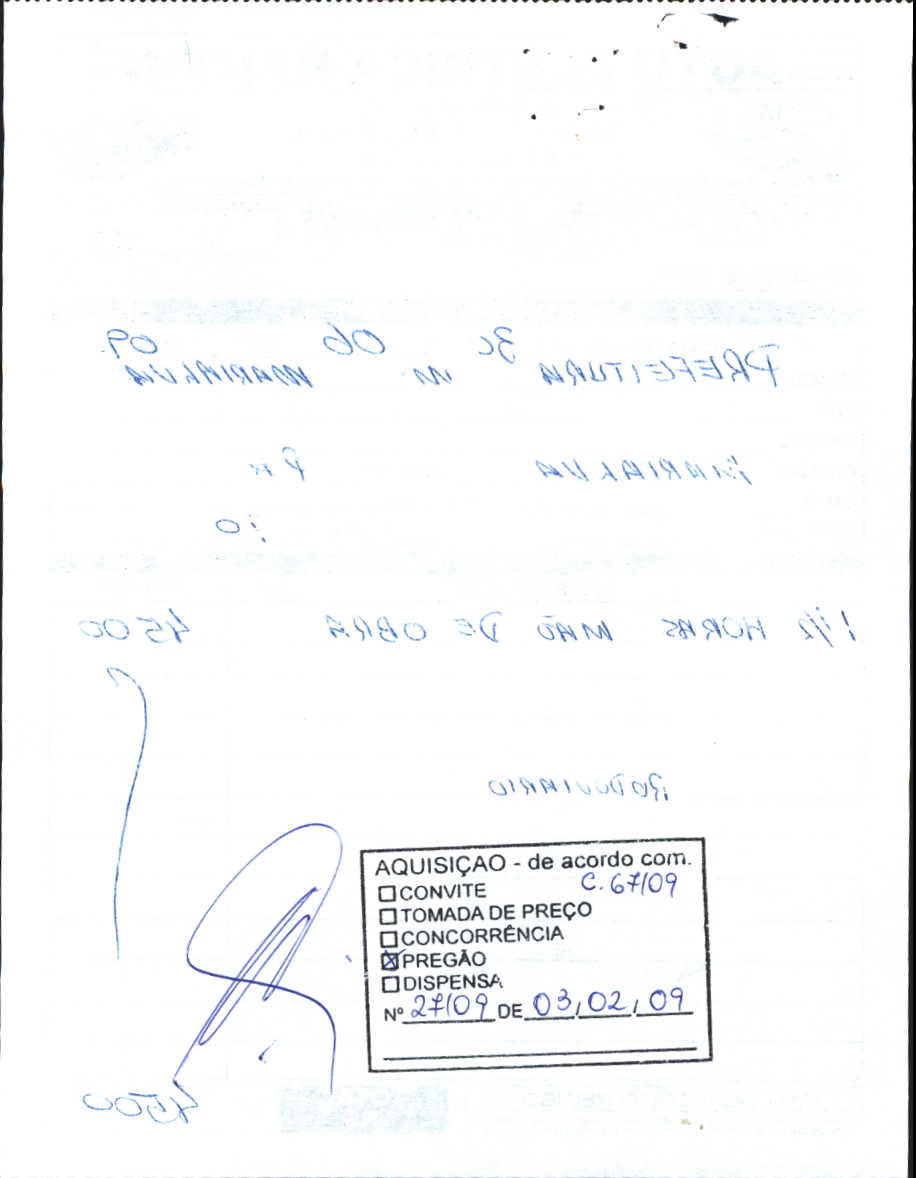 30 06 09
PREFEITURA M MARIALVA
MARIALVA PR
10
1 1/2 HORAS MÃO DE OBRA 4500
RODOVIARIO
AQUISIÇAO - de acordo com.
C. 67/09
CONVITE
TOMADA DE PREÇO
CONCORRÊNCIA
PREGÃO
DISPENSA
Nº 27/09 DE 03/02/09
4500